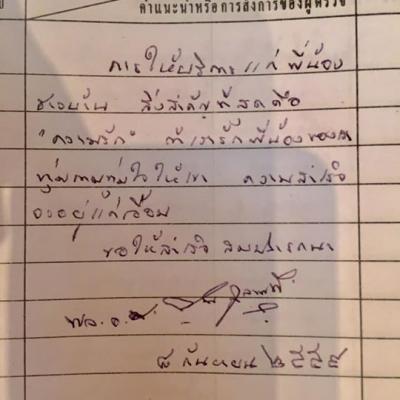 คำแนะนำหรือการสั่งการของผู้ตรวจ
การให้บริการแก่พี่น้อง
ชาวบ้าน สิ่งสำคัญที่สุดคือ
"ความรัก" ถ้าเรารักพี่น้องของเรา
ทุ่มเททุ่มใจให้เขา ความสำเร็จ
จะอยู่แค่เอื้อม
ขอให้สำเร็จ สมปรารถนา
พล.อ.
๘ กันยายน ๒๕๕๙